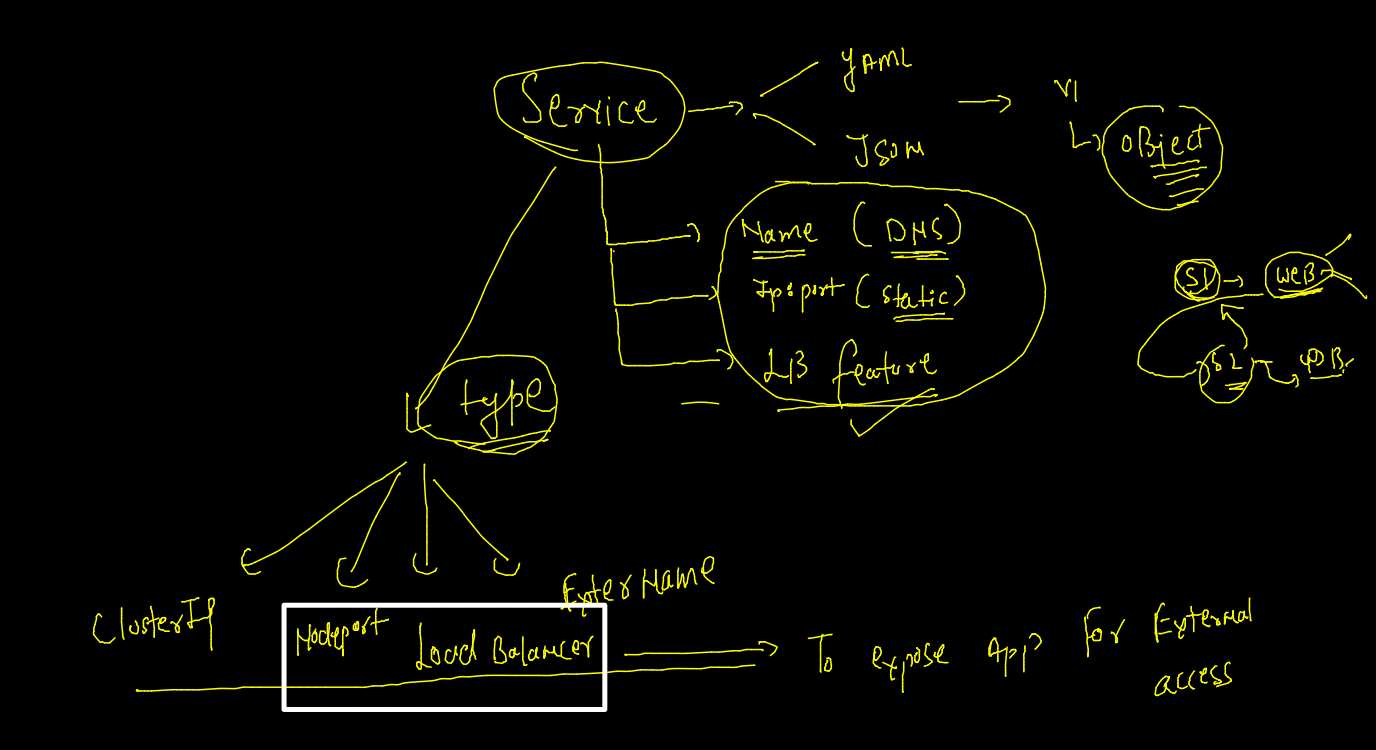 YAML
Service
V1
JSON
object
Name (DNS)
Ip:port (static)
LB feature
S1
WEB
S2
DB
type
ClusterIP
Nodeport
Load Balancer
ExterName
To expose App for External
access